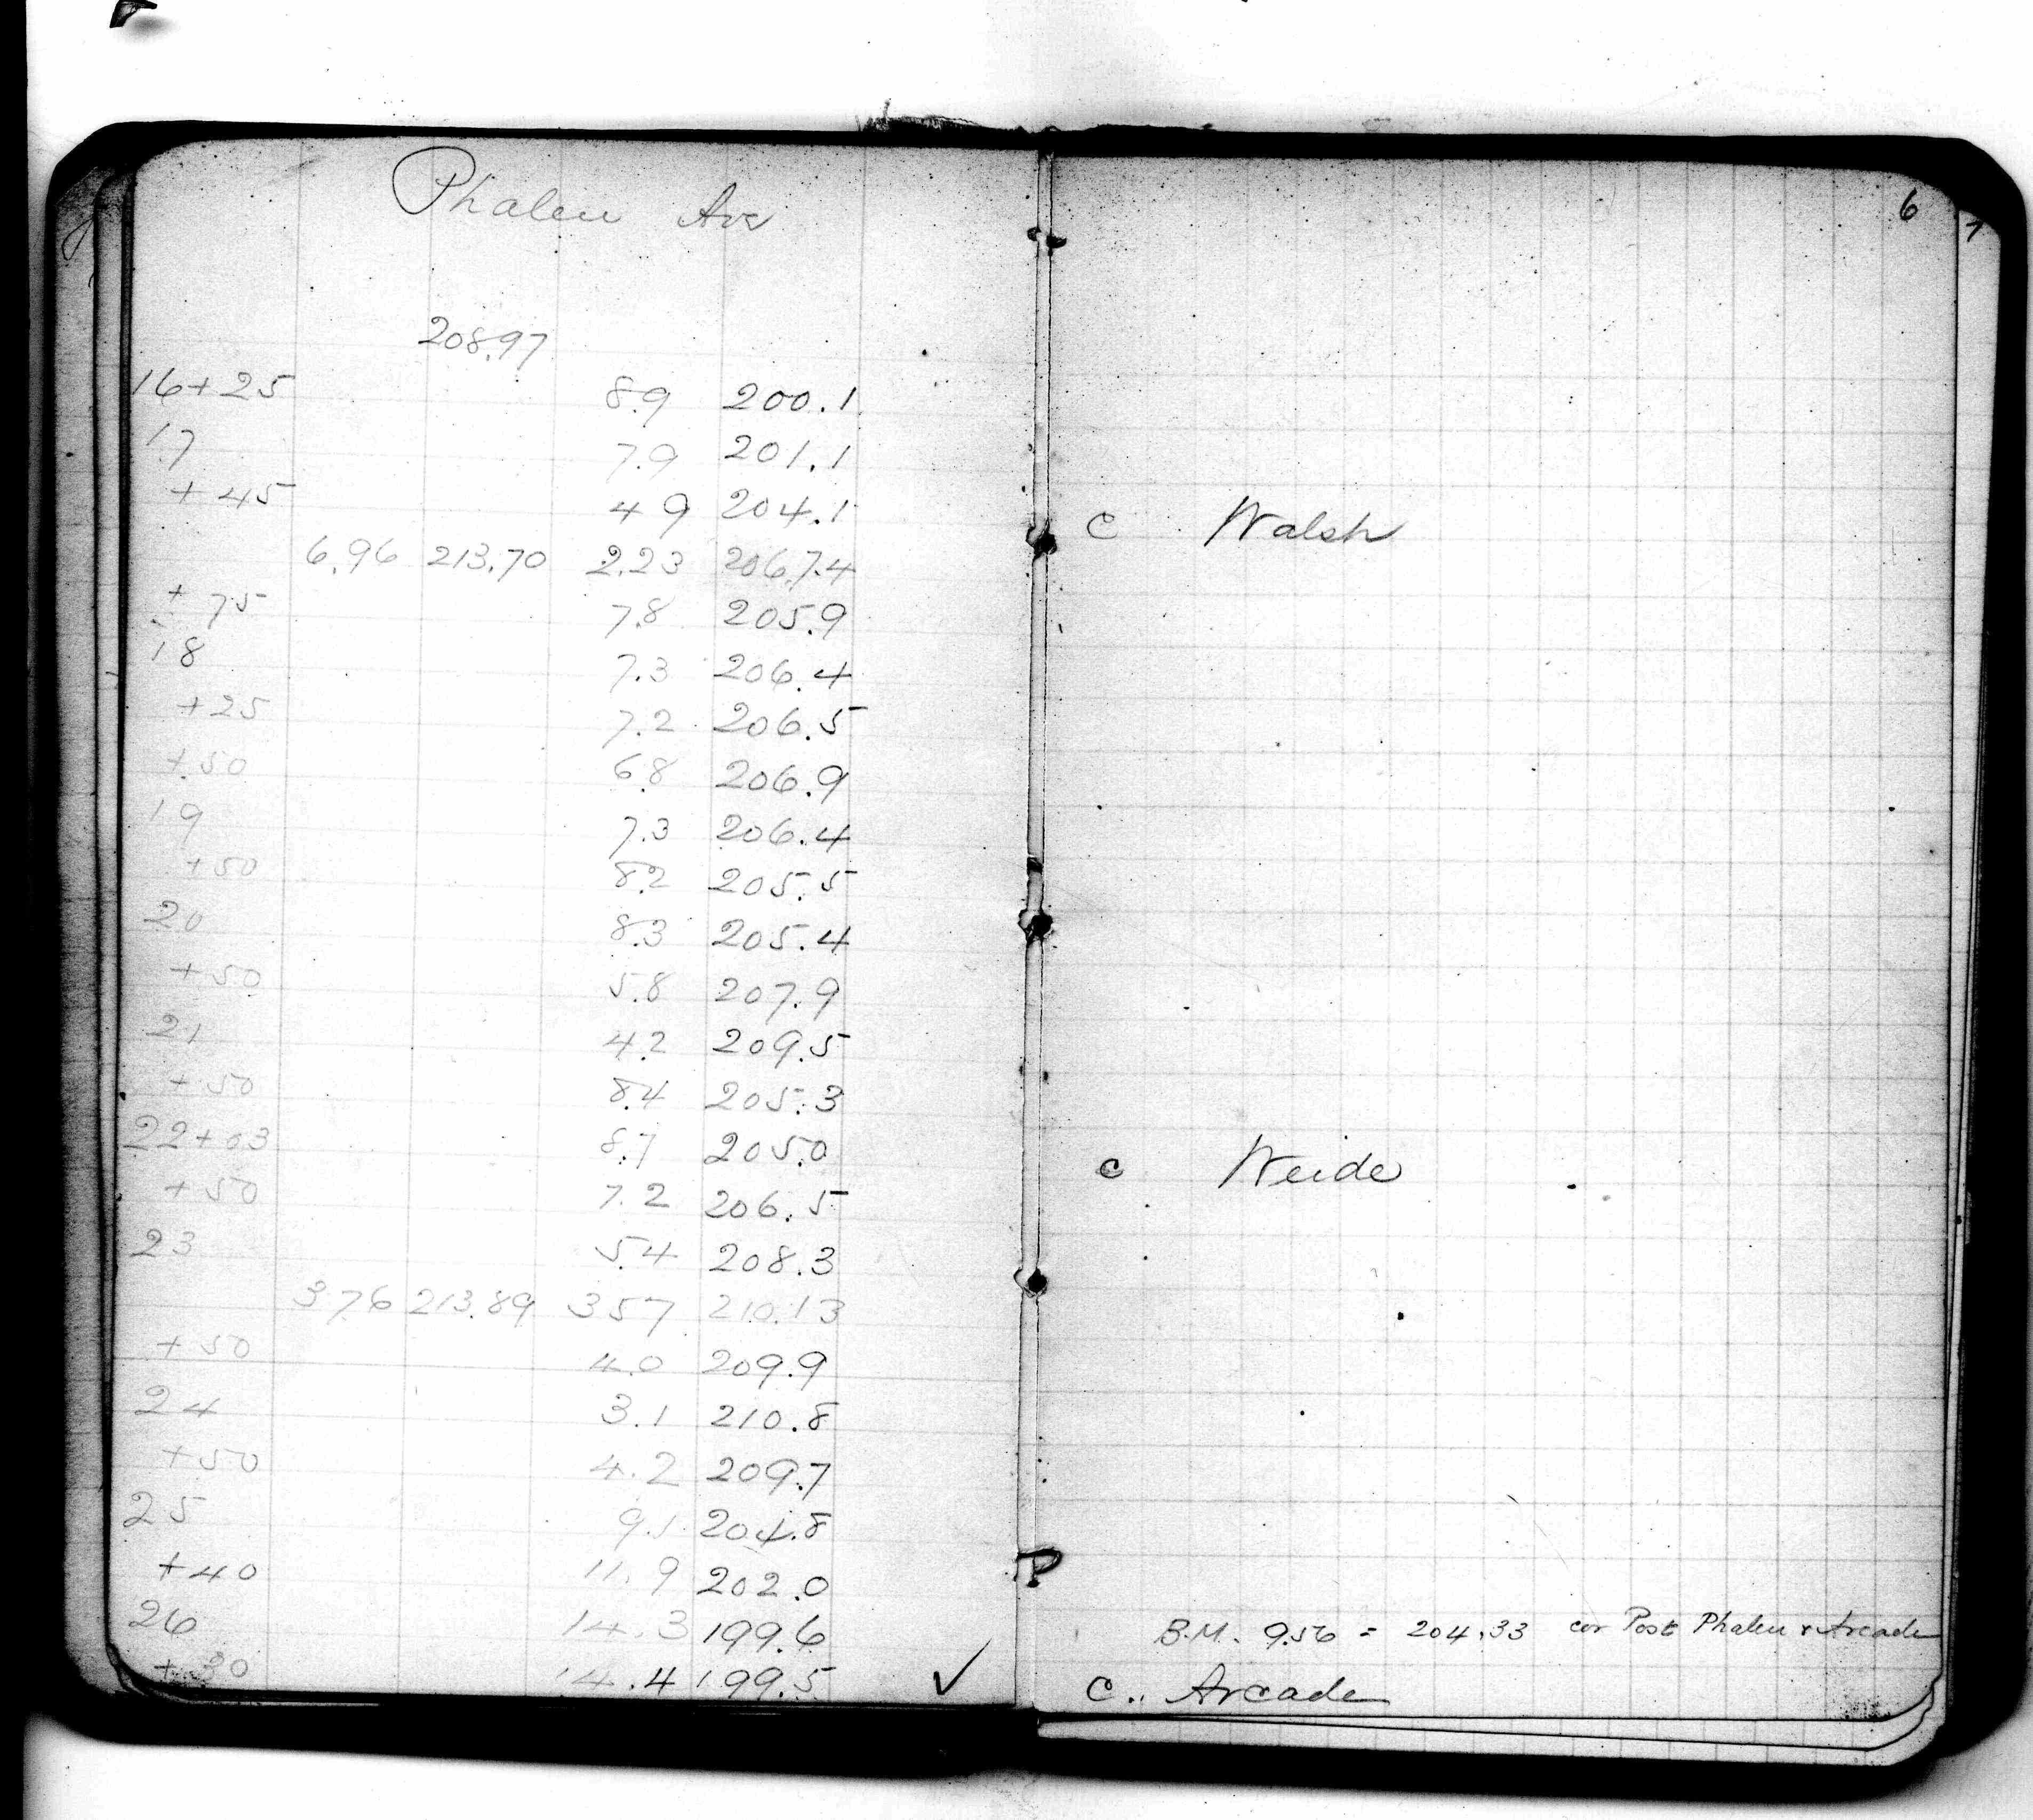 Phalen Ave
208.97
16+25 8.9 200.1
17 7.9 201.1
+45 4 9 204.1
6.96 213.70 2.23 206.74
+75 7.8 205.9
18 7.3 206.4
+25 7.2 206.5
+50 6.8 206.9
19 7.3 206.4
+50 8.2 205.5
20 8.3 205.4
+50 5.8 207.9
21 4.2 209.5
+50 8.4 205.3
22+03 8.7 205.0
+50 7.2 206.5
23 5.4 208.3
3 76 213.89 3 57 210.13
+50 4.0 209.9
24 3.1 210.8
+50 4.2 209.7
25 9.1 204.8
+40 11.9 202.0
26 14.3 199.6
+30 14.4 199.5 ✓
6
7
C Walsh
C Weide
P
B.M. 9.56 = 204.33 cor Post Phalen & Arcade
C.. Arcade